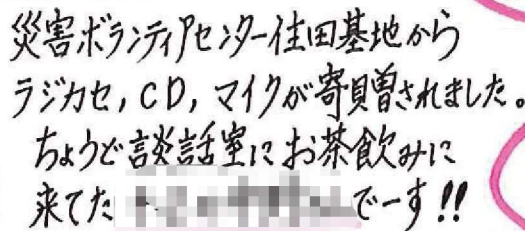 災害ボランティアセンター住田基地から
ラジカセ,CD,マイクが寄贈されました。
ちょうど談話室にお茶飲みに
来てた でーす!!